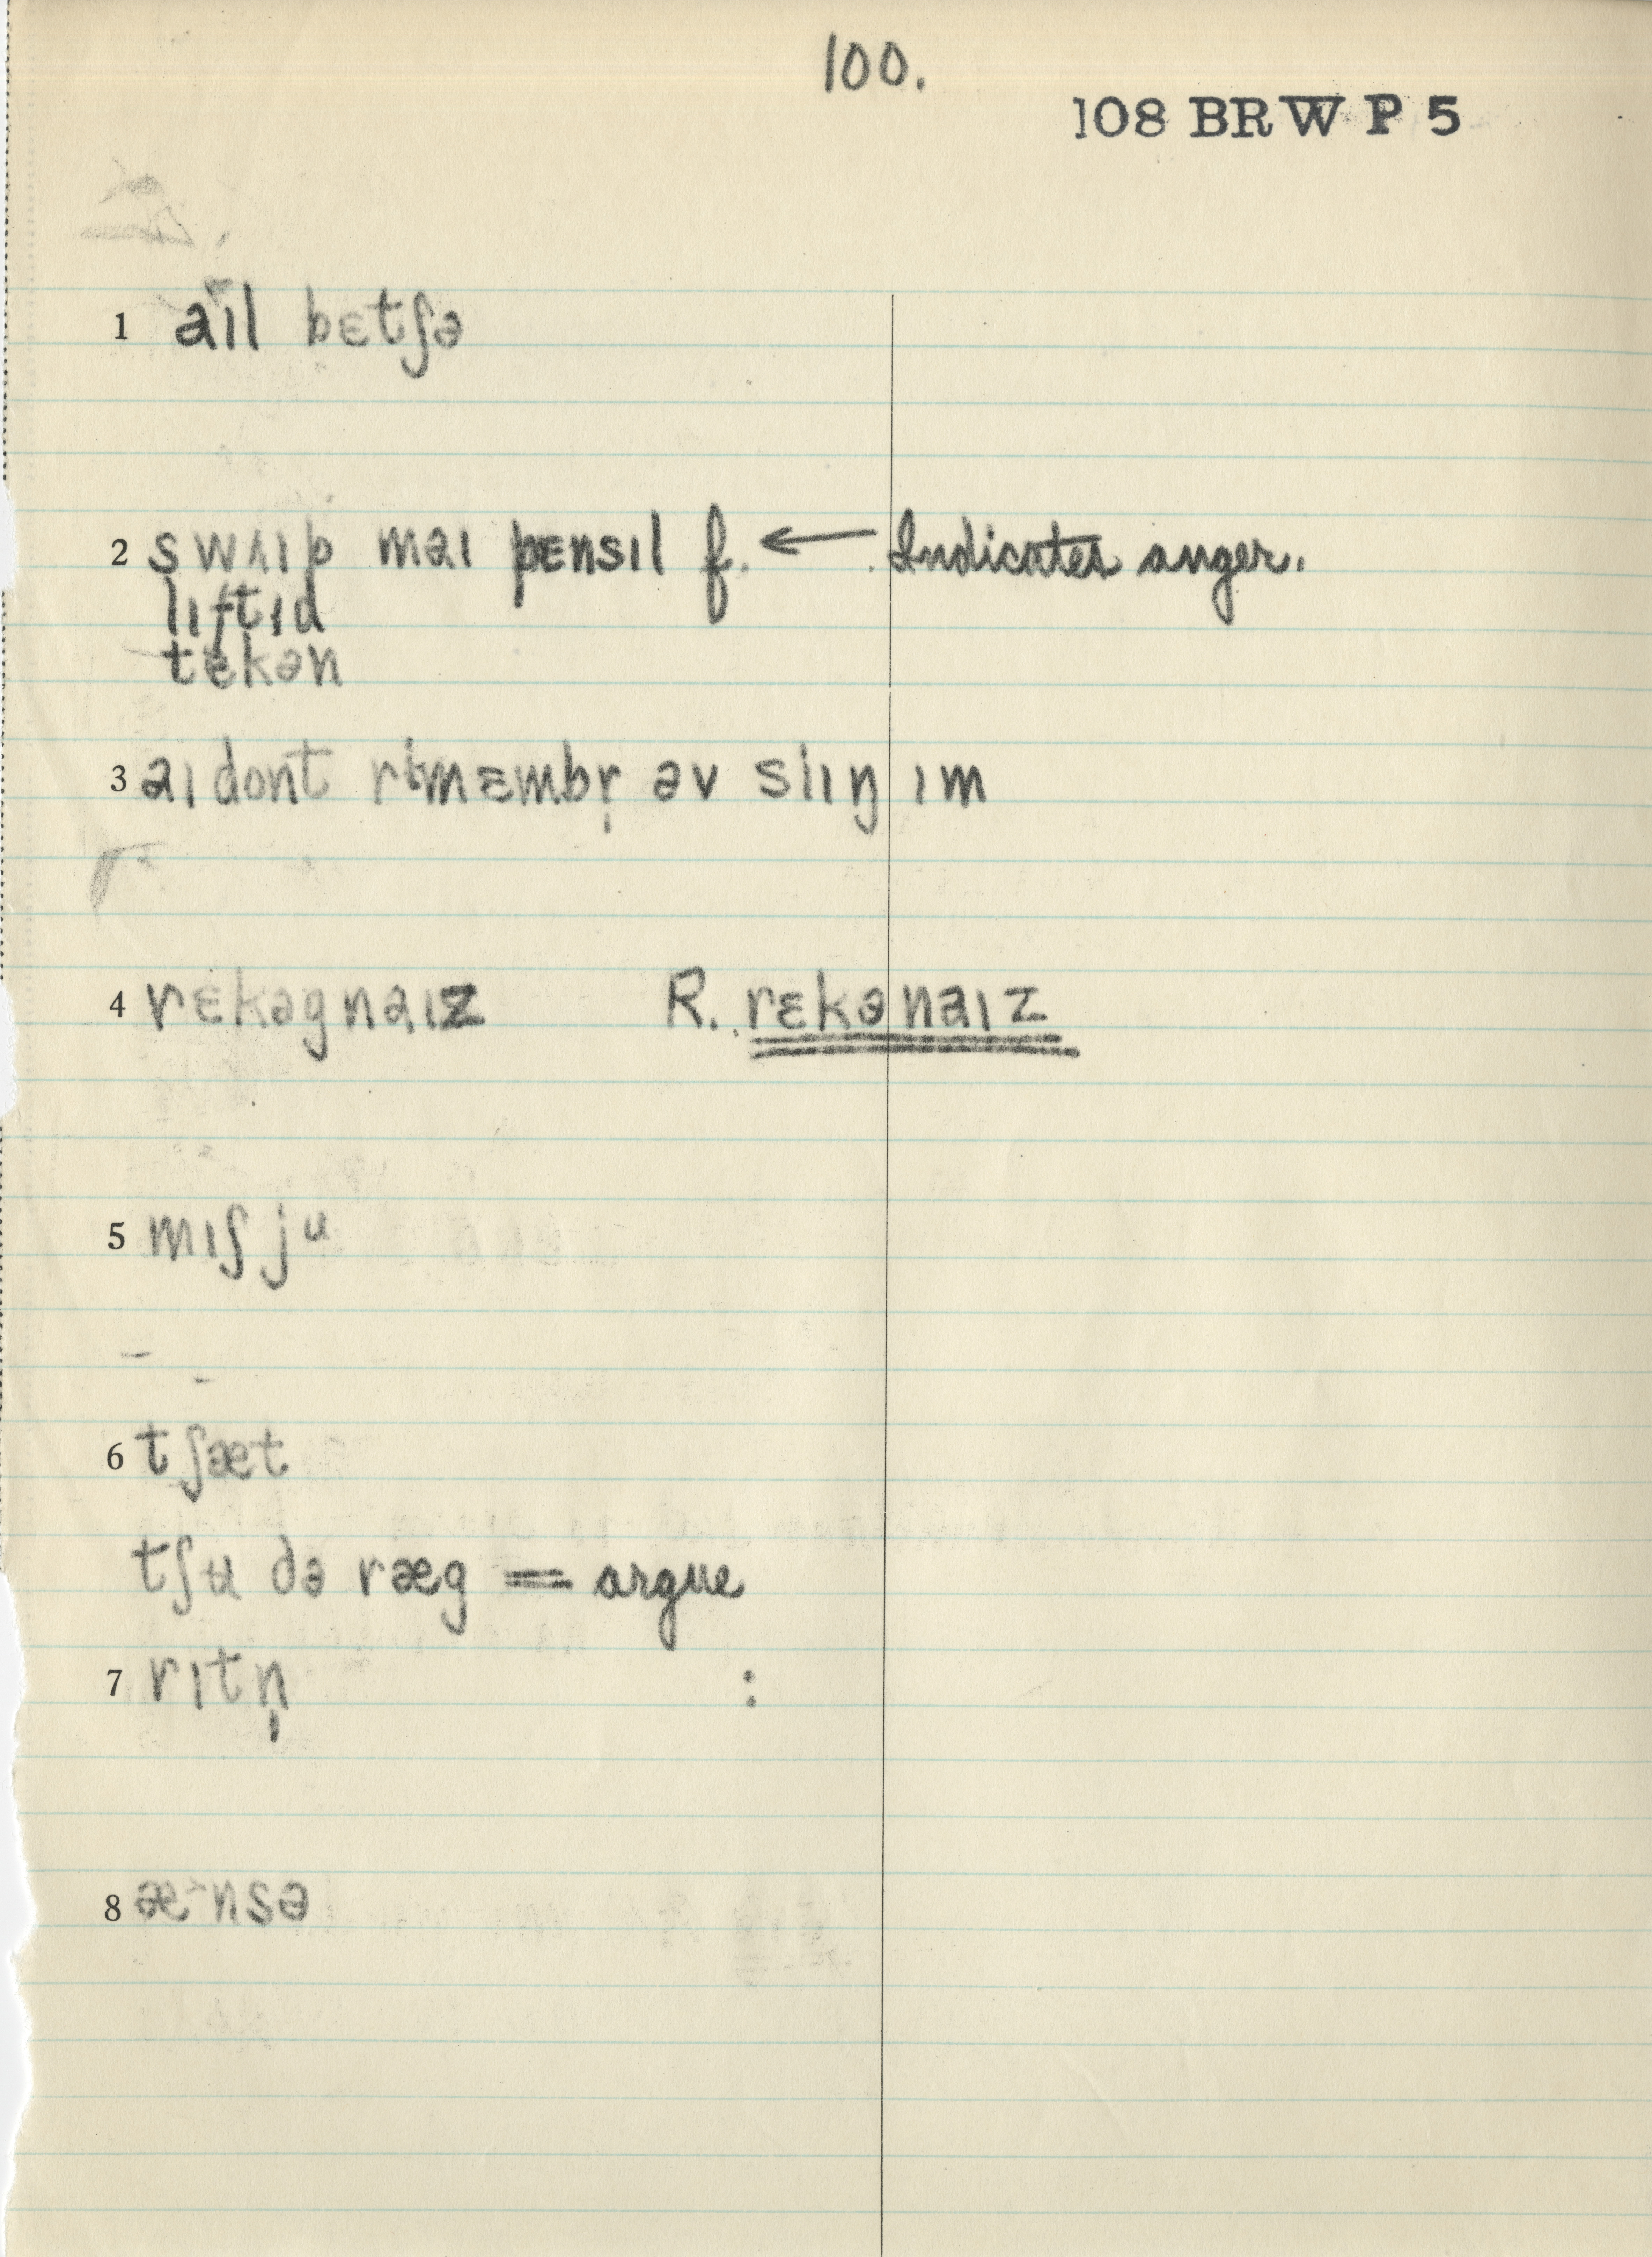 100.
108 BRW P 5
1 aɪl bɛtʃə
2 swʌɪp maɪ pɛnsɪl f. ← Indicates anger.
lɪftɪd
tekən
3 aɪ dont rɪmɛmbr̩ əv siɪŋ ɪm
4 rɛkəgnaɪz R. rɛkənaɪz
5 mɪʃ ju
6 tʃæt
tʃu də ræg = argue
7 rɪtn̩ :
8 æ˞nsə